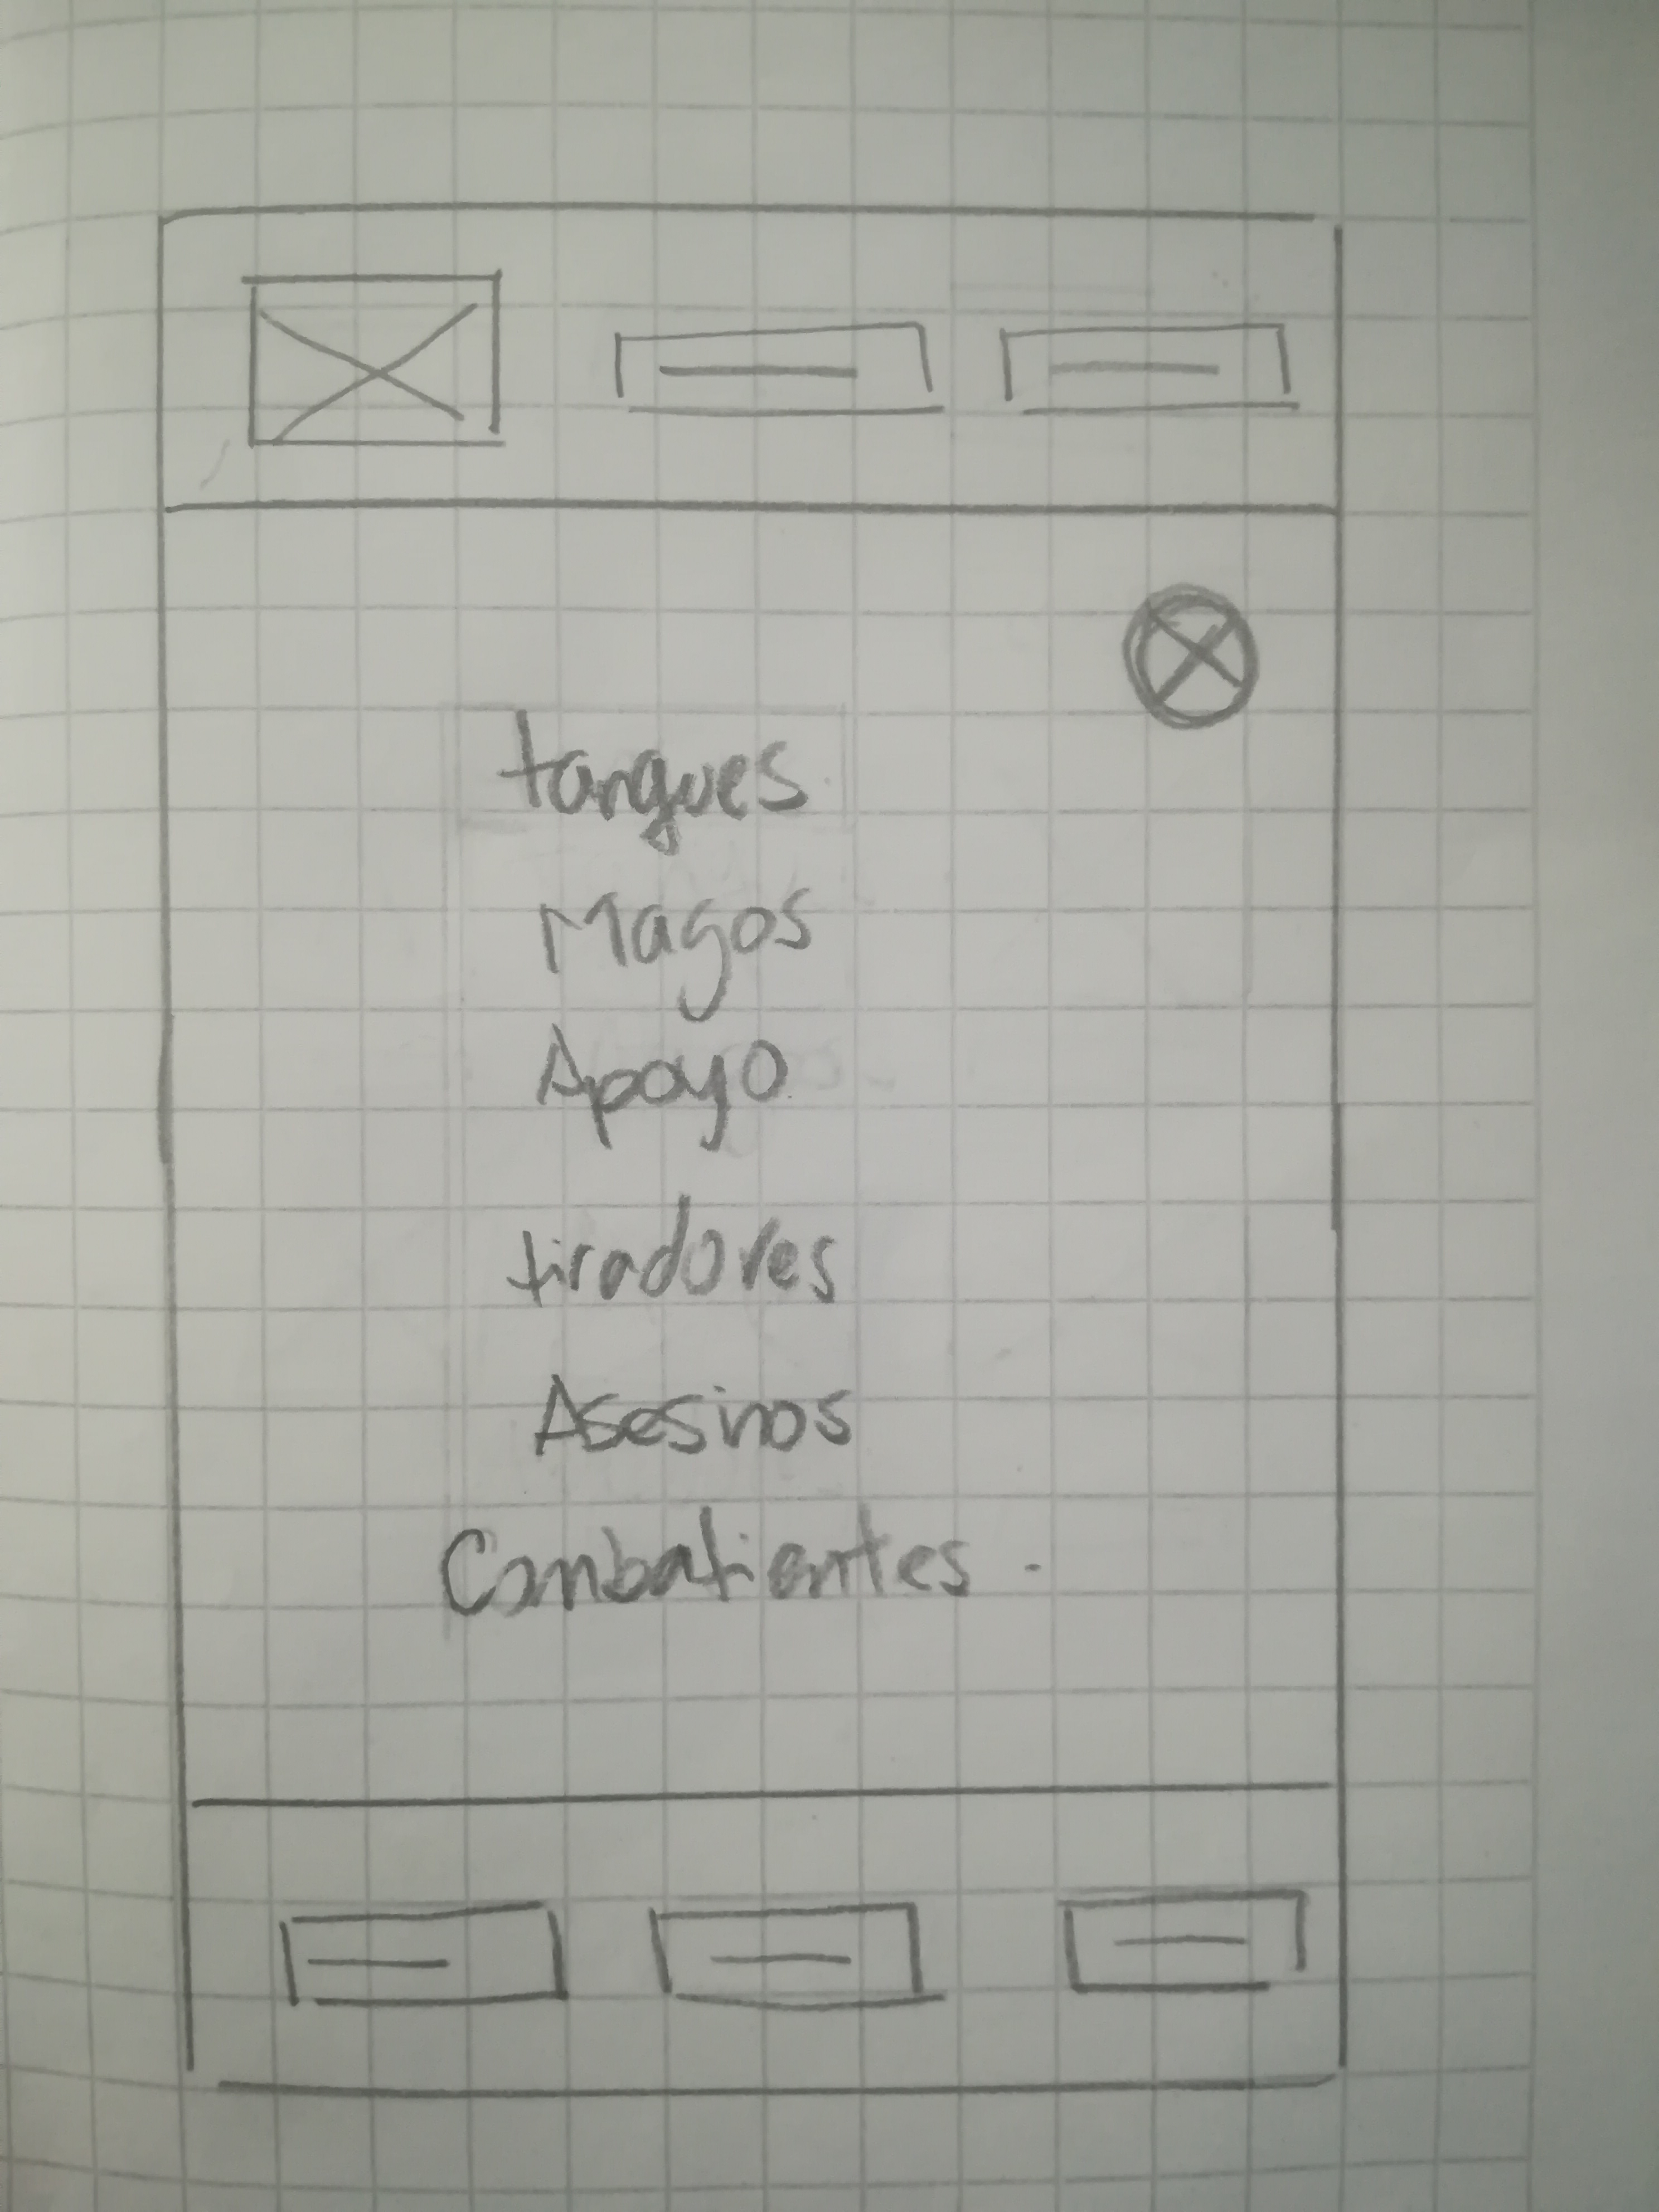 tanques
Magos
Apoyo
tiradores
Asesinos
Combatientes